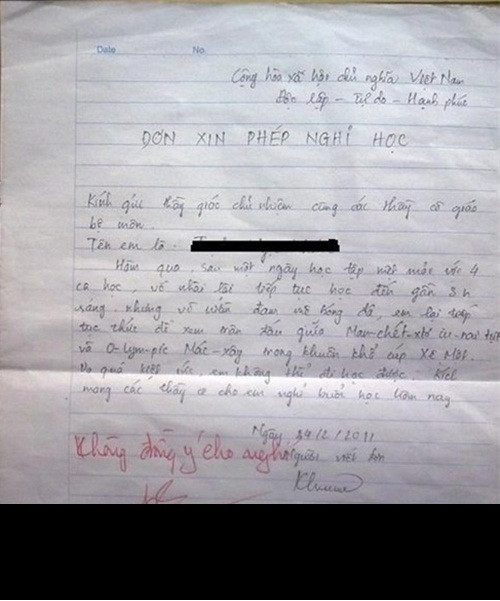 Date No.
Cộng hòa xã hội chủ nghĩa Việt Nam
Độc lập - Tự do - Hạnh phúc
ĐƠN XIN PHÉP NGHỈ HỌC
Kính gửi thầy giáo chủ nhiệm cùng các thầy cô giáo
bộ môn.
Tên em là:
Hôm qua, sau một ngày học tập mệt mỏi với 4
ca học, về nhà lại tiếp tục học đến gần 3h
sáng, nhưng vì niềm đam mê bóng đá, em lại tiếp
tục thức để xem trận đấu giữa Man-chét-xtơ iu-nai-tựt
và O-lym-píc Mác-xây trong khuôn khổ cúp Xê Một.
Do quá kiệt sức, em không thể đi học được. Kính
mong các thầy cô cho em nghỉ buổi học hôm nay
Ngày 24/2/2011
Không đồng ý cho nghỉ
Người viết đơn